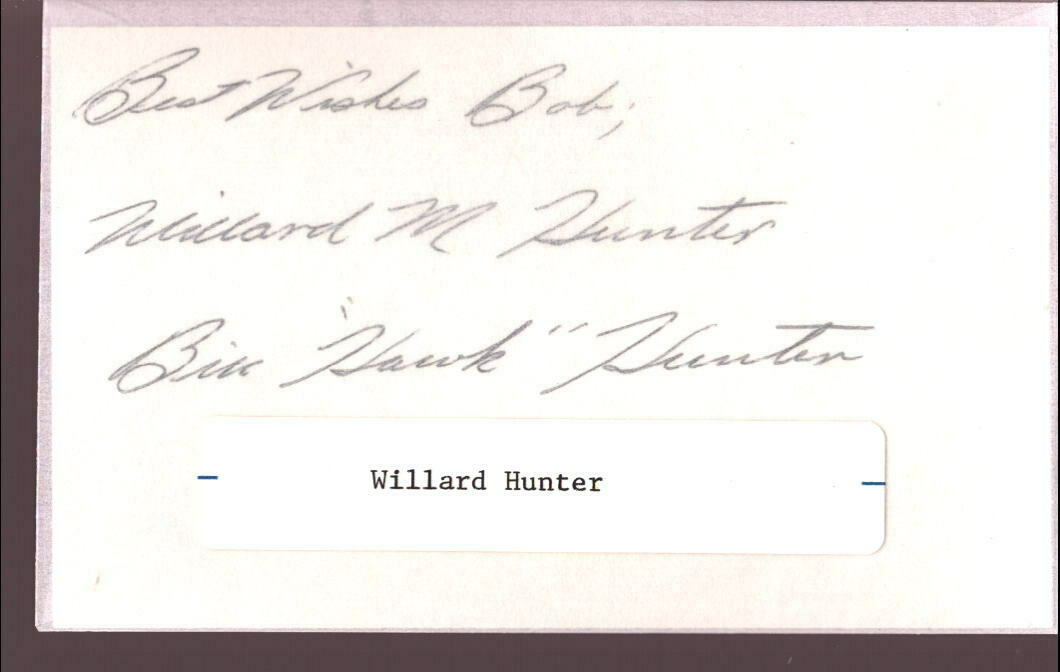 Best Wishes Bob,
Willard M Hunter
Bill "Hawk" Hunter
Willard Hunter